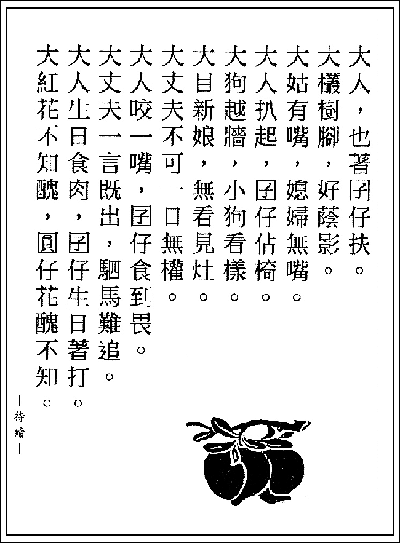 大人，也著囝仔扶。
大欉樹腳，好蔭影。
大姑有嘴，媳婦無嘴。
大人扒起，囝仔佔椅。
大狗越牆，小狗看樣。
大目新娘，無看見灶。
大丈夫不可一日無權。
大人咬一嘴，囝仔食到畏。
大丈夫一言既出，駟馬難追。
大人生日食肉，囝仔生日著打。
大紅花不知醜，圓仔花醜不知。
—待續—